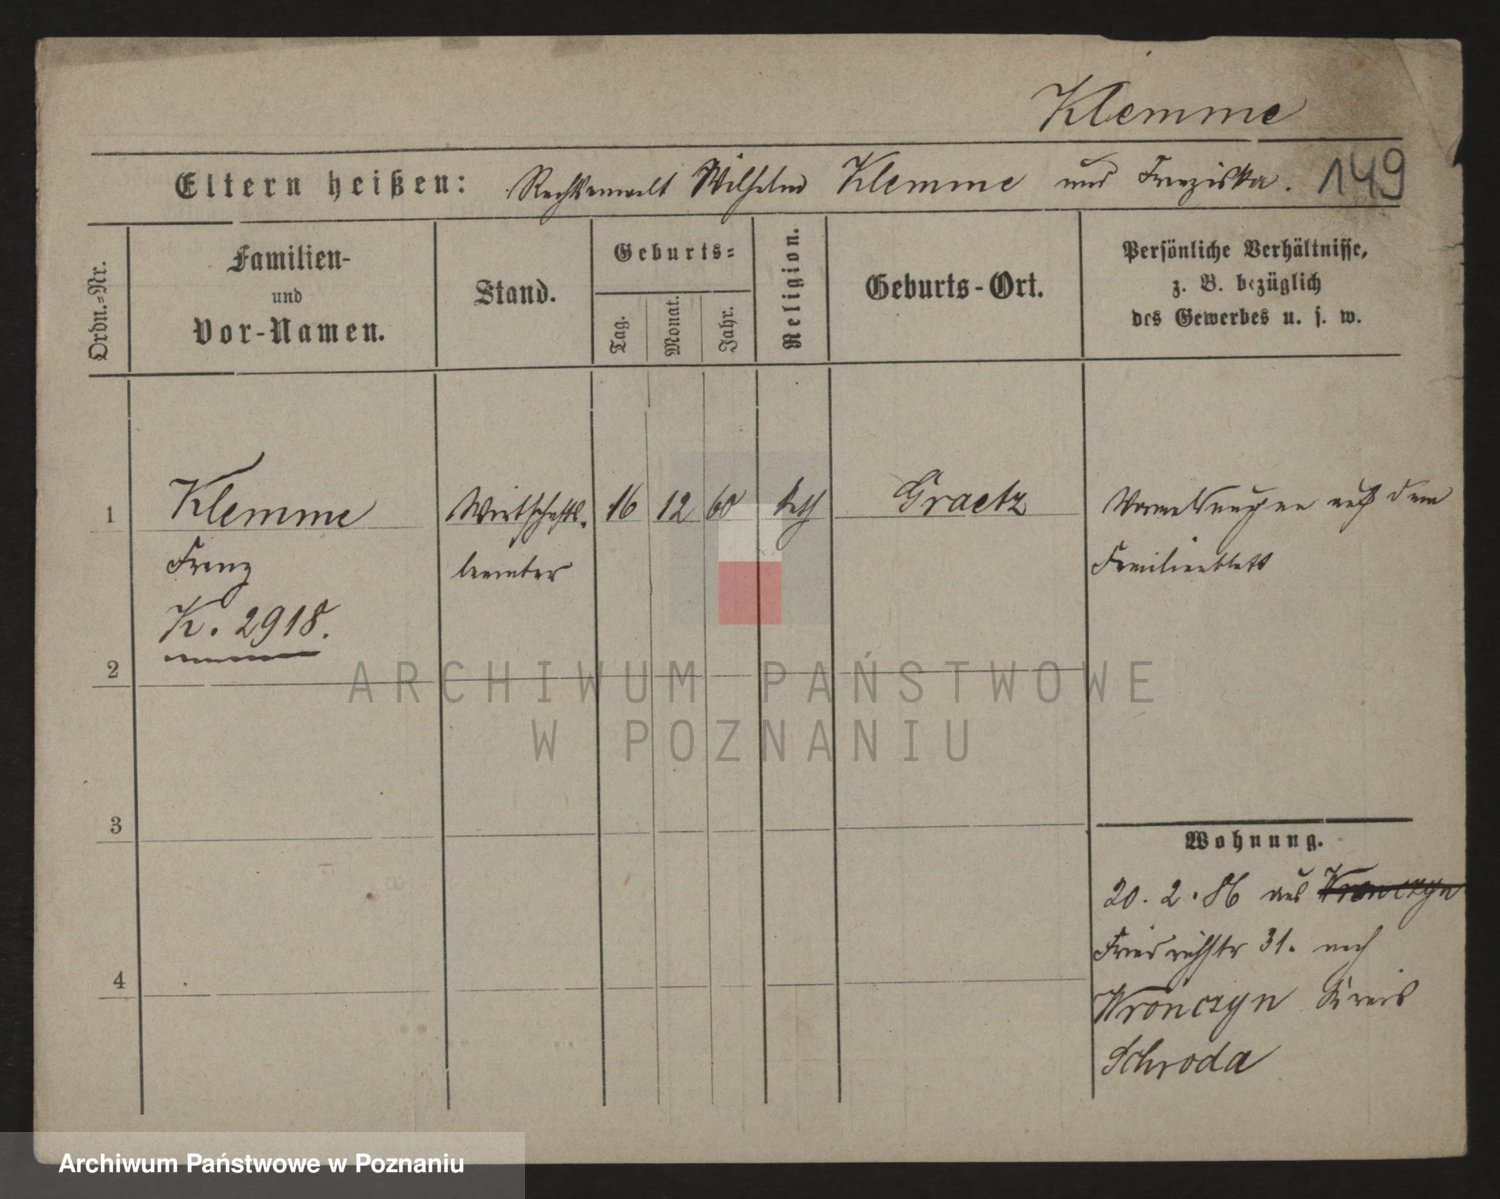 Klemme
Eltern heißen: Rechtsanwalt Wilhelm Klemme und Franziska. 149
Ordn.-Nr.
Familien-
und
Vor-Namen.
Stand.
Geburts-
Tag.
Monat.
Jahr.
Religion.
Geburts-Ort.
Persönliche Verhältnisse,
z. B. bezüglich
des Gewerbes u. s. w.
1 Klemme Wirtschafts- 16 12 60 kath Graetz
Franz beamter
K. 2918.
Vormerkungen auf dem
Familienblatt
2
3
4
Wohnung.
20. 2. 86 aus Wronczyn
Friedrichstr 31. nach
Wronczyn Kreis
Schroda
ARCHIWUM PAŃSTWOWE
W POZNANIU
Archiwum Państwowe w Poznaniu